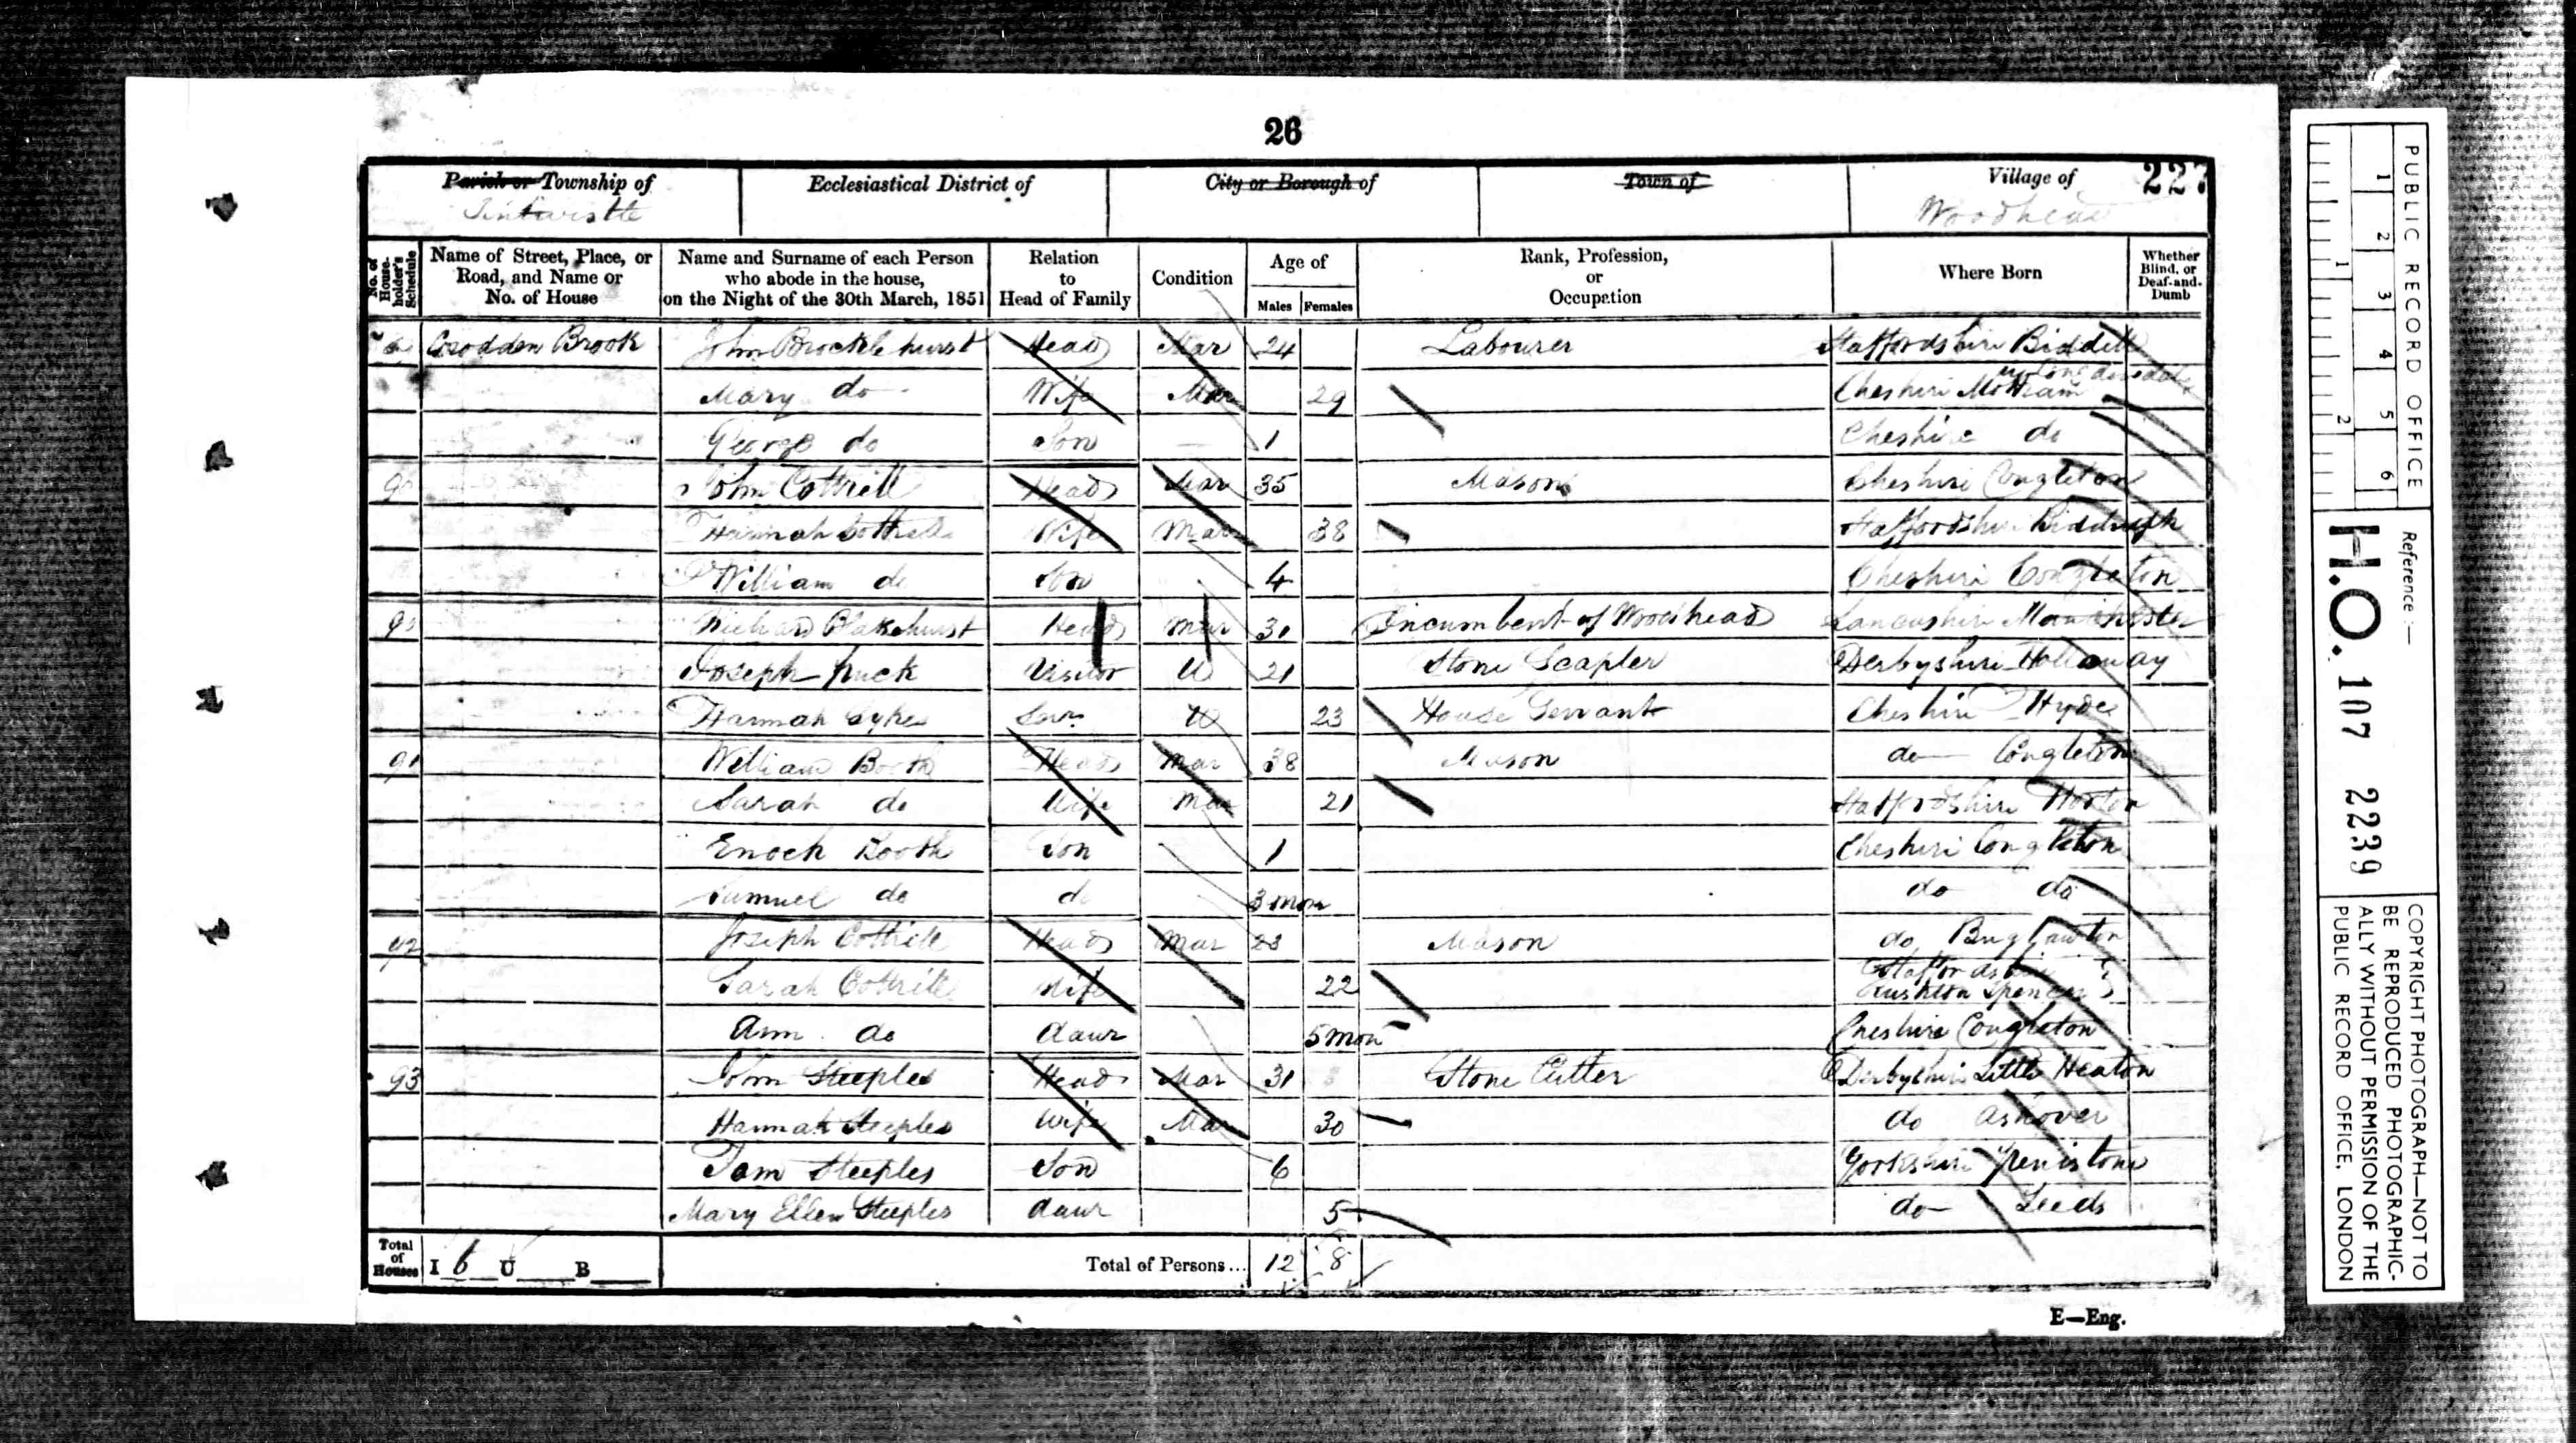 26
Parish or Township of
Tintwistle
Ecclesiastical District of
City or Borough of
Town of
Village of
Woodhead
227
No. of House-holder's Schedule
Name of Street, Place, or Road, and Name or No. of House
Name and Surname of each Person who abode in the house, on the Night of the 30th March, 1851
Relation to Head of Family
Condition
Age of
Males Females
Rank, Profession, or Occupation
Where Born
Whether Blind, or Deaf-and-Dumb
Crodden Brook John Brocklehurst Head Mar 24 Labourer Staffordshire
Mary do Wife Mar 29 Cheshire Mottram
George do Son 1 Cheshire do
John Cottrill Head Mar 35 Mason Cheshire Congleton
Hannah Cottrill Wife Mar 38 Staffordshire
William do Son 4 Cheshire Congleton
Richard Head Mar 31 Incumbent of Woodhead Lancashire Manchester
Joseph Visitor U 21 Stone Scapler Derbyshire Hollaway
Hannah Sykes Serv 23 House Servant Cheshire Hyde
91 William Booth Head Mar 38 Mason do Congleton
Sarah do Wife Mar 21 Staffordshire Horton
Enoch Booth Son 1 Cheshire Congleton
Samuel do do 3 mon do do
92 Joseph Cottrill Head Mar 23 Mason do Buglawton
Sarah Cottrill Wife 22 Staffordshire Rushton Spencer
Ann do daur 5 mon Cheshire Congleton
93 John Steeples Head Mar 31 Stone Cutter Derbyshire Little Heaton
Hannah Steeples Wife Mar 30 do Ashover
Tom Steeples Son 6 Yorkshire Penistone
Mary Ellen Steeples daur 5 do Leeds
Total of Houses I 6 U B
Total of Persons... 12 8
E—Eng.
PUBLIC RECORD OFFICE
1 2 3 4 5 6
1 2
Reference:—
H.O. 107 2239
COPYRIGHT PHOTOGRAPH—NOT TO
BE REPRODUCED PHOTOGRAPHIC-
ALLY WITHOUT PERMISSION OF THE
PUBLIC RECORD OFFICE, LONDON